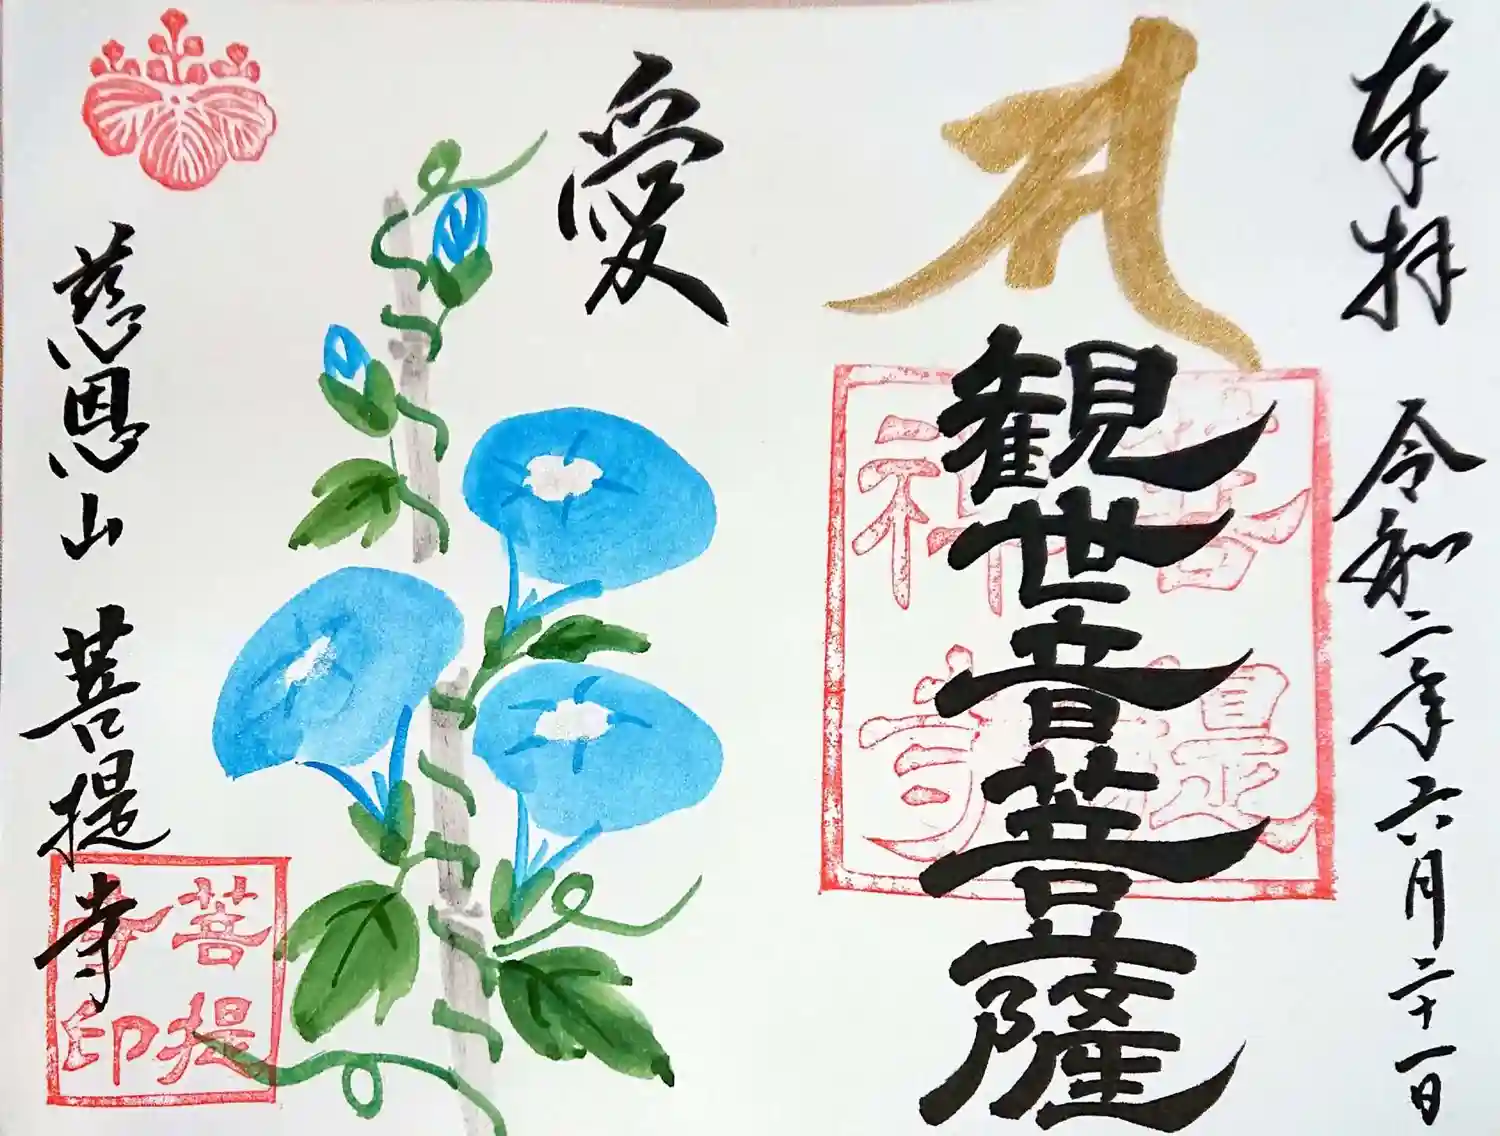 奉拝 令和二年六月二十一日
観世音菩薩
菩提禅寺
愛
慈恩山 菩提寺
菩提寺印